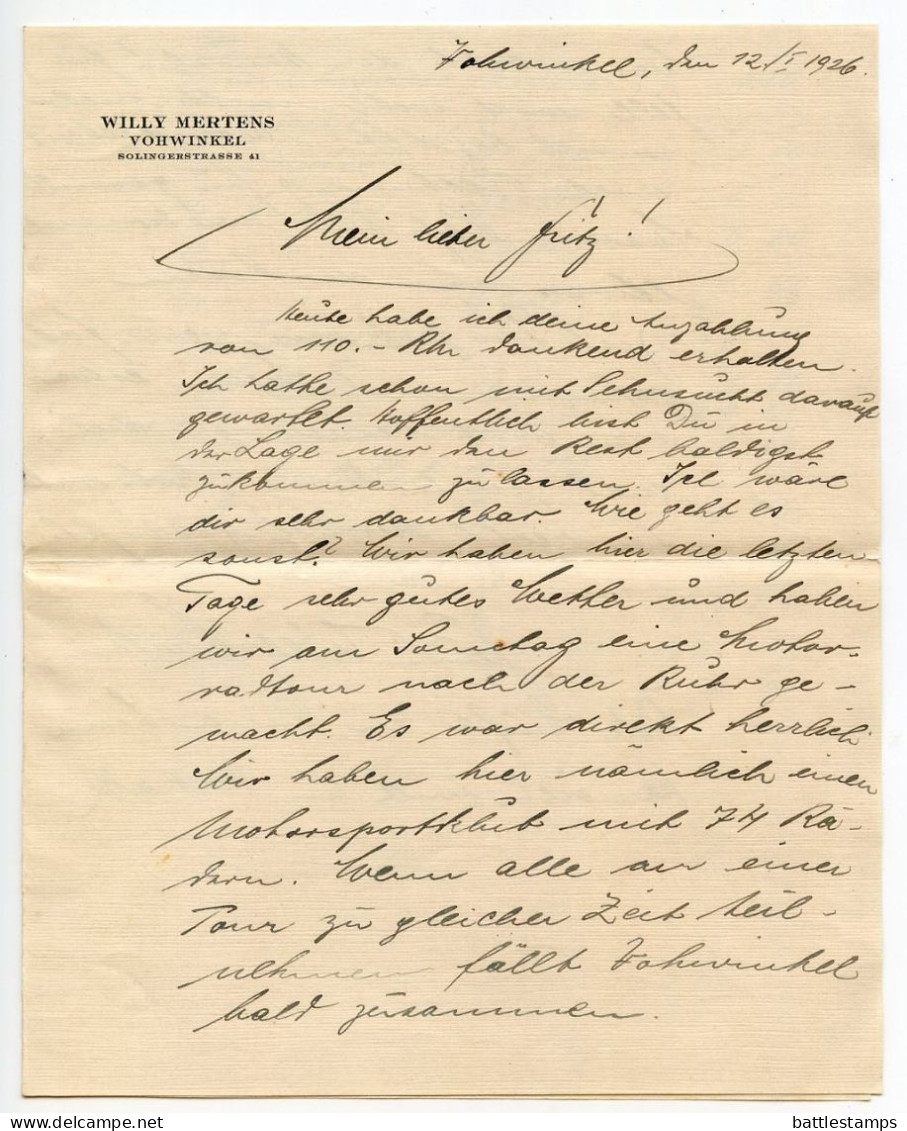 Vohwinkel, den 12/I 1926.
WILLY MERTENS
VOHWINKEL
SOLINGERSTRASSE 41
Mein lieber Fritz!
Heute habe ich deine Anzahlung
von 110.- Rm dankend erhalten.
Ich hatte schon mit Sehnsucht darauf
gewartet. Hoffentlich bist Du in
der Lage mir den Rest baldigst
zukommen zu lassen. Ich wäre
dir sehr dankbar. Wie geht es
sonst? Wir haben hier die letzten
Tage sehr gutes Wetter und haben
wir am Sonntag eine Motor-
radtour nach der Ruhr ge-
macht. Es war direkt herrlich
Wir haben hier nämlich einen
Motorsportklub mit 74 Rä-
dern. Wenn alle an einer
Tour zu gleicher Zeit teil-
nehmen fällt Vohwinkel
bald zusammen.
battlestamps